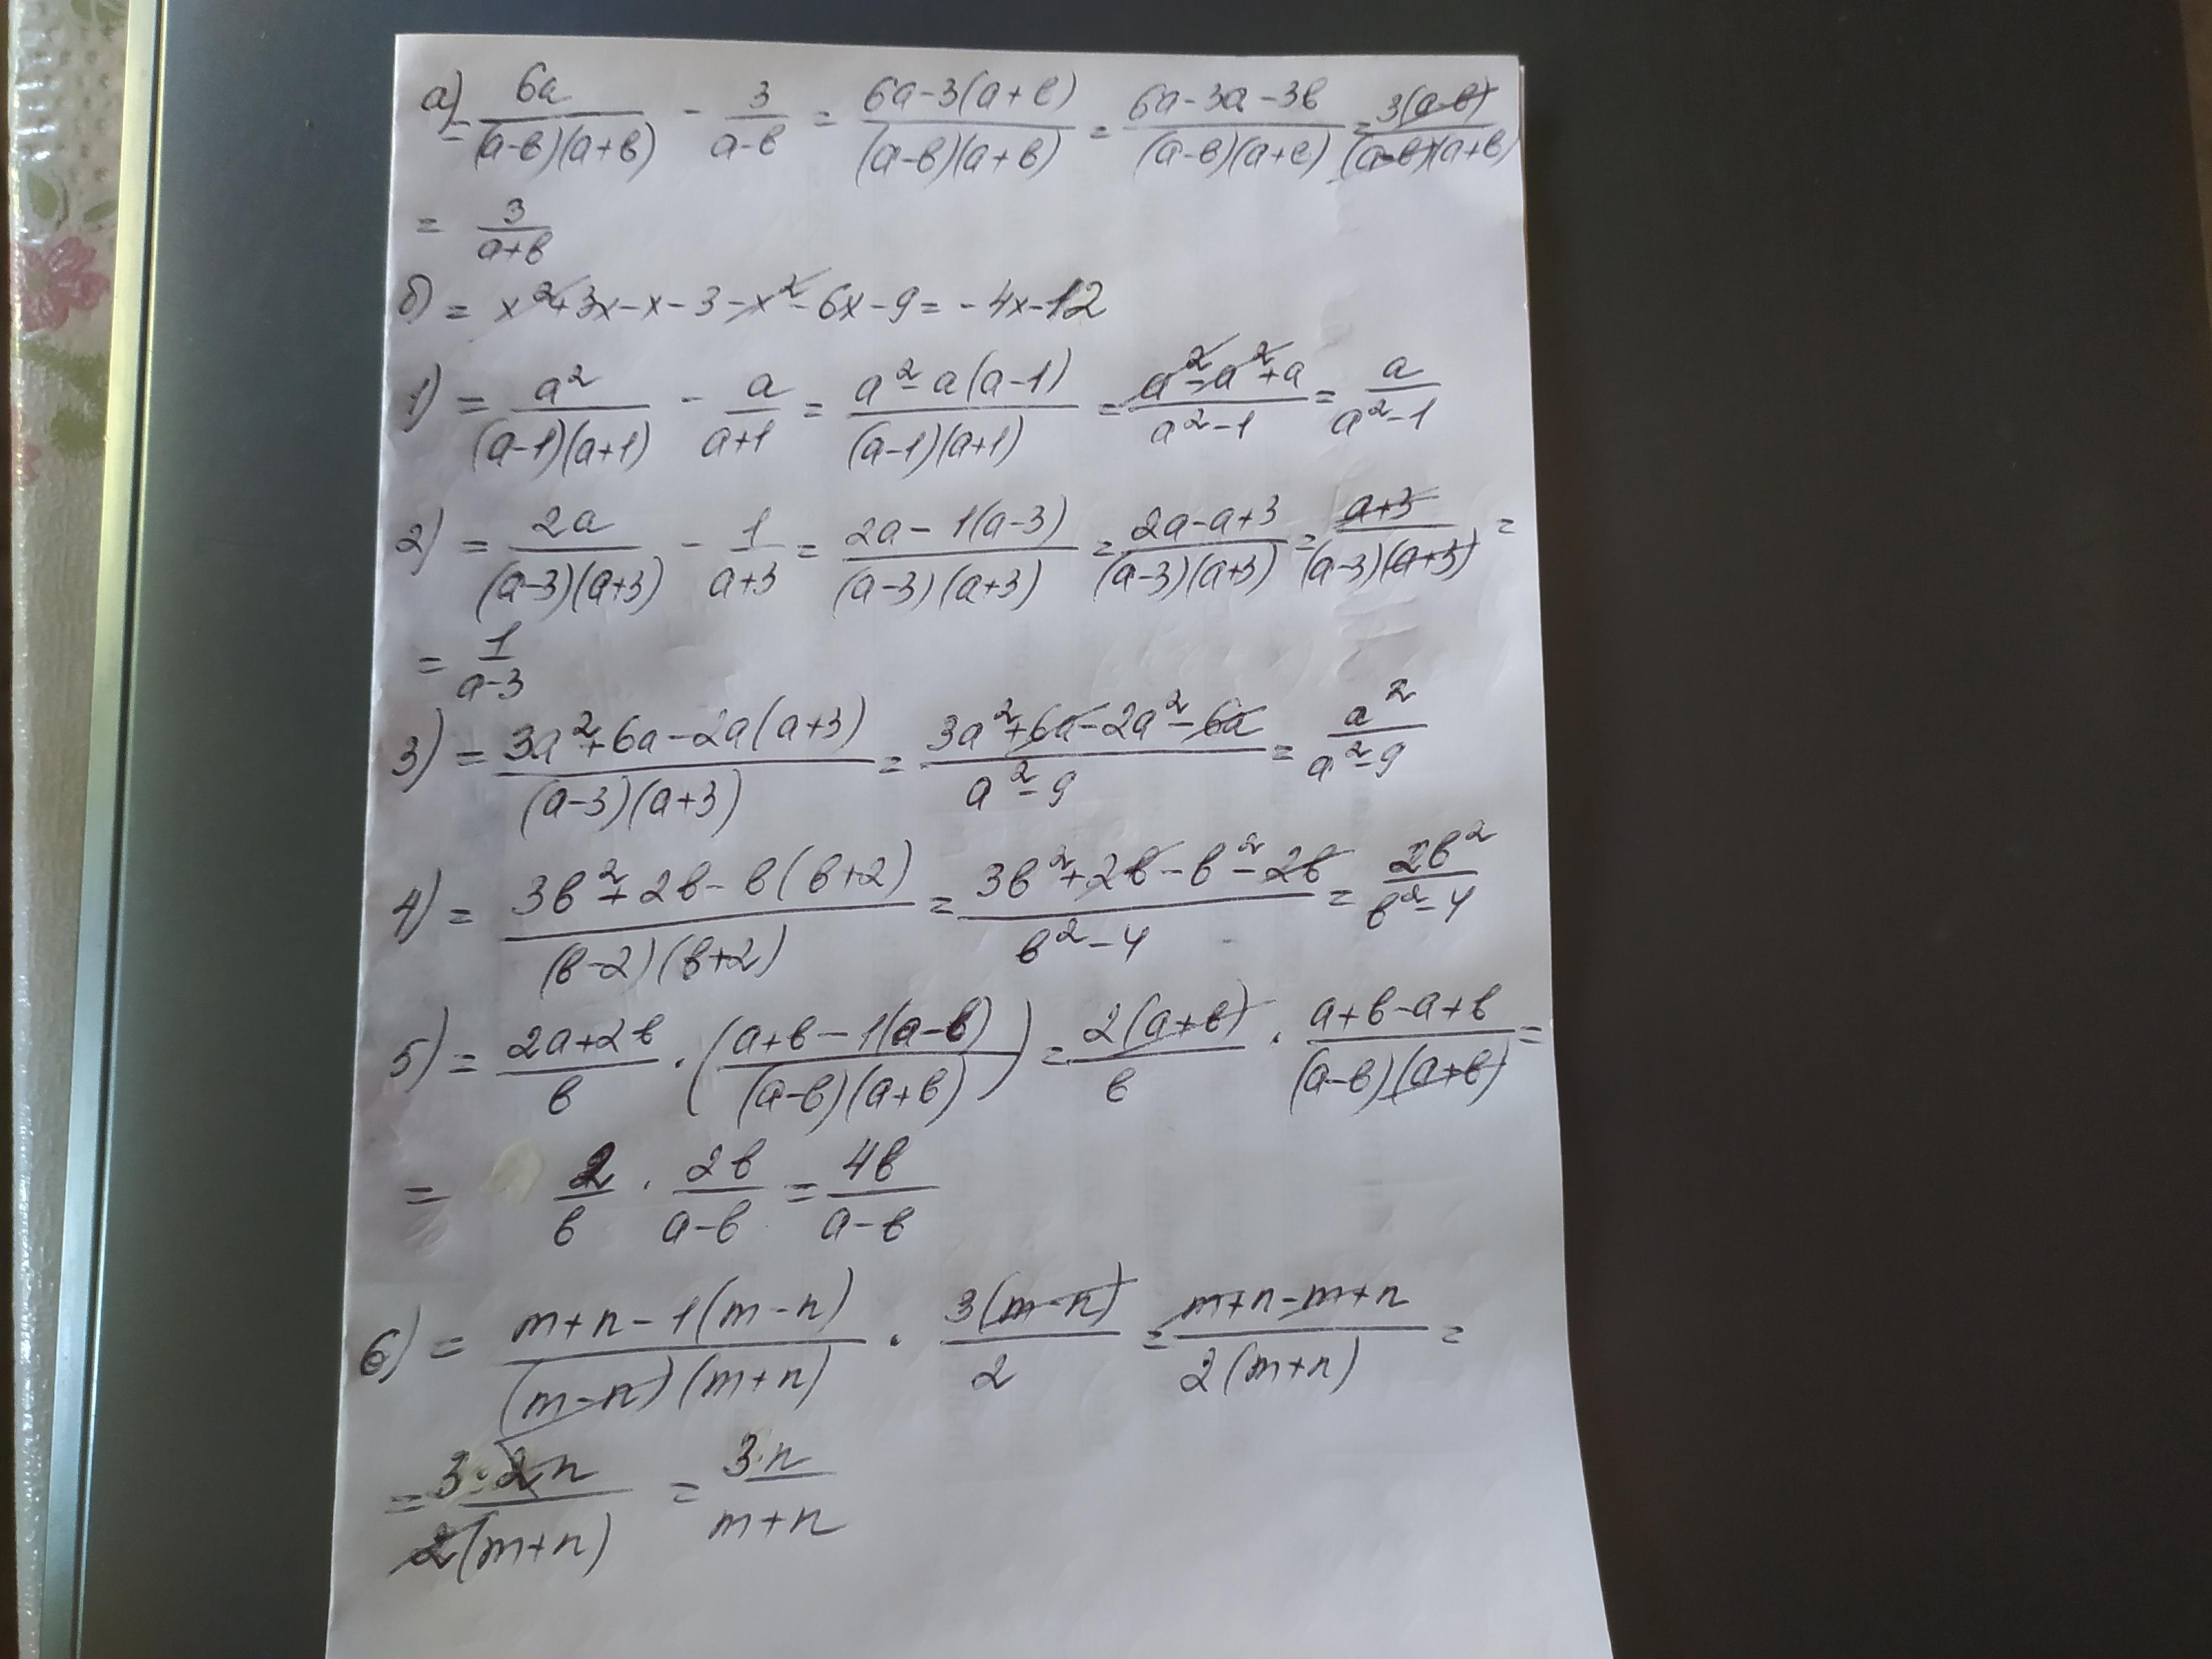 а) = 6a/((a-b)(a+b)) - 3/(a-b) = (6a-3(a+b))/((a-b)(a+b)) = (6a-3a-3b)/((a-b)(a+b)) = 3(a-b)/((a-b)(a+b))
= 3/(a+b)
б) = x²+3x-x-3-x²-6x-9 = -4x-12
1) = a²/((a-1)(a+1)) - a/(a+1) = (a²-a(a-1))/((a-1)(a+1)) = (a²-a²+a)/(a²-1) = a/(a²-1)
2) = 2a/((a-3)(a+3)) - 1/(a+3) = (2a-1(a-3))/((a-3)(a+3)) = (2a-a+3)/((a-3)(a+3)) = (a+3)/((a-3)(a+3)) =
= 1/(a-3)
3) = (3a²+6a-2a(a+3))/((a-3)(a+3)) = (3a²+6a-2a²-6a)/(a²-9) = a²/(a²-9)
4) = (3b²+2b-b(b+2))/((b-2)(b+2)) = (3b²+2b-b²-2b)/(b²-4) = 2b²/(b²-4)
5) = (2a+2b)/b · ((a+b-1(a-b))/((a-b)(a+b))) = 2(a+b)/b · (a+b-a+b)/((a-b)(a+b)) =
= 2/b · 2b/(a-b) = 4b/(a-b)
6) = (m+n-1(m-n))/((m-n)(m+n)) · 3(m-n)/2 = (m+n-m+n)/(2(m+n)) =
= 3·2n/(2(m+n)) = 3·n/(m+n)